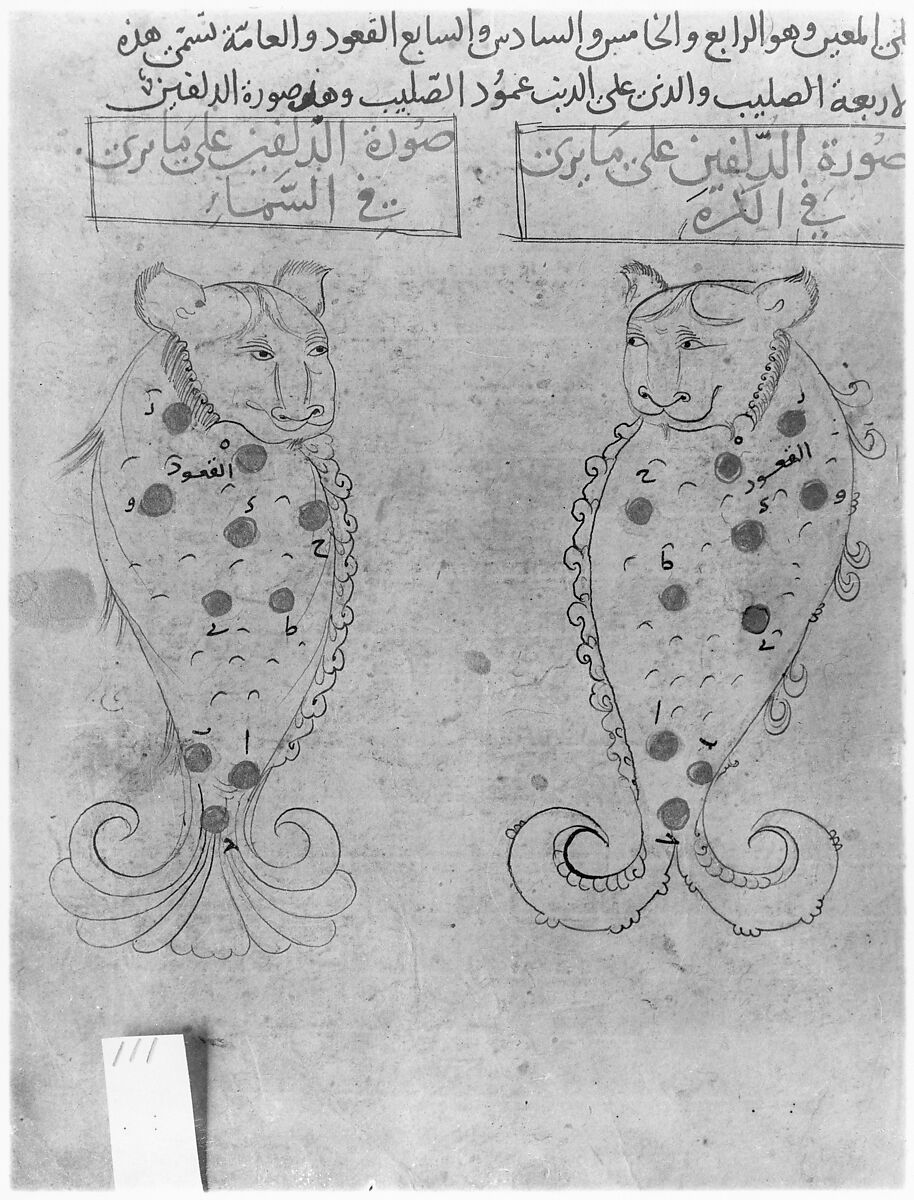 المعين وهو الرابع والخامس والسادس والسابع القعود والعامّة تسّمى هذه
الاربعة الصليب والذى على الذنب عمُود الصّليب وهذه صورة الدلفين
صُورة الدّلفين على مَا يرى
في الكرَة
صُورة الدّلفين على مَا يرى
في السَّماء
د
ه
القعود
و
ح
ا
د
ه
القعود
و
ح
ا
111